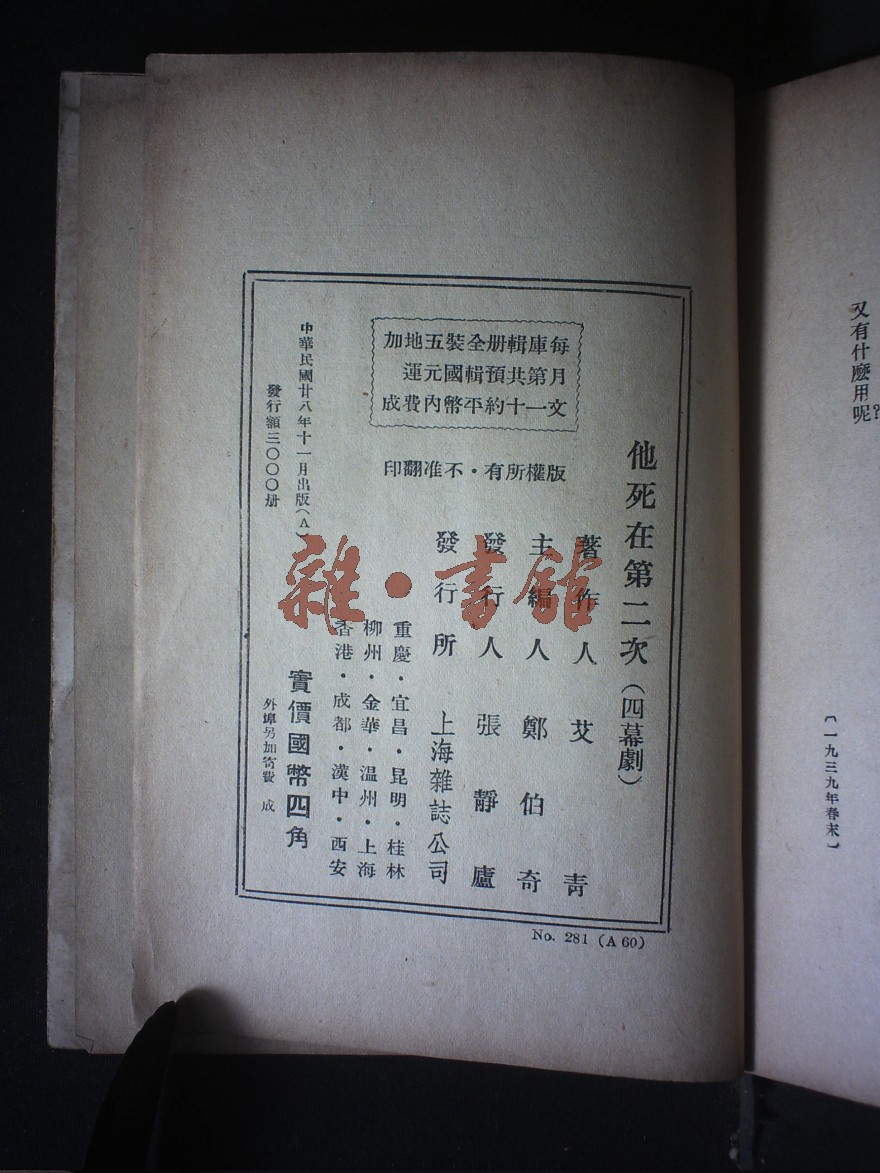 又有什麼用呢？
〔一九三九年春末〕
他死在第二次（四幕劇）
每月文
庫第一
輯共十
册預約
全輯平
裝國幣
五元內
地運費
加　成
版權所有·不准翻印
著作人　艾青
主編人　鄭伯奇
發行人　張靜廬
發行所　上海雜誌公司
重慶·宜昌·昆明·桂林
柳州·金華·溫州·上海
香港·成都·漢中·西安
中華民國廿八年十一月出版（A）
實價國幣四角
發行額三〇〇〇册
外埠另加寄費　成
No. 281 (A 60)
雜·書館